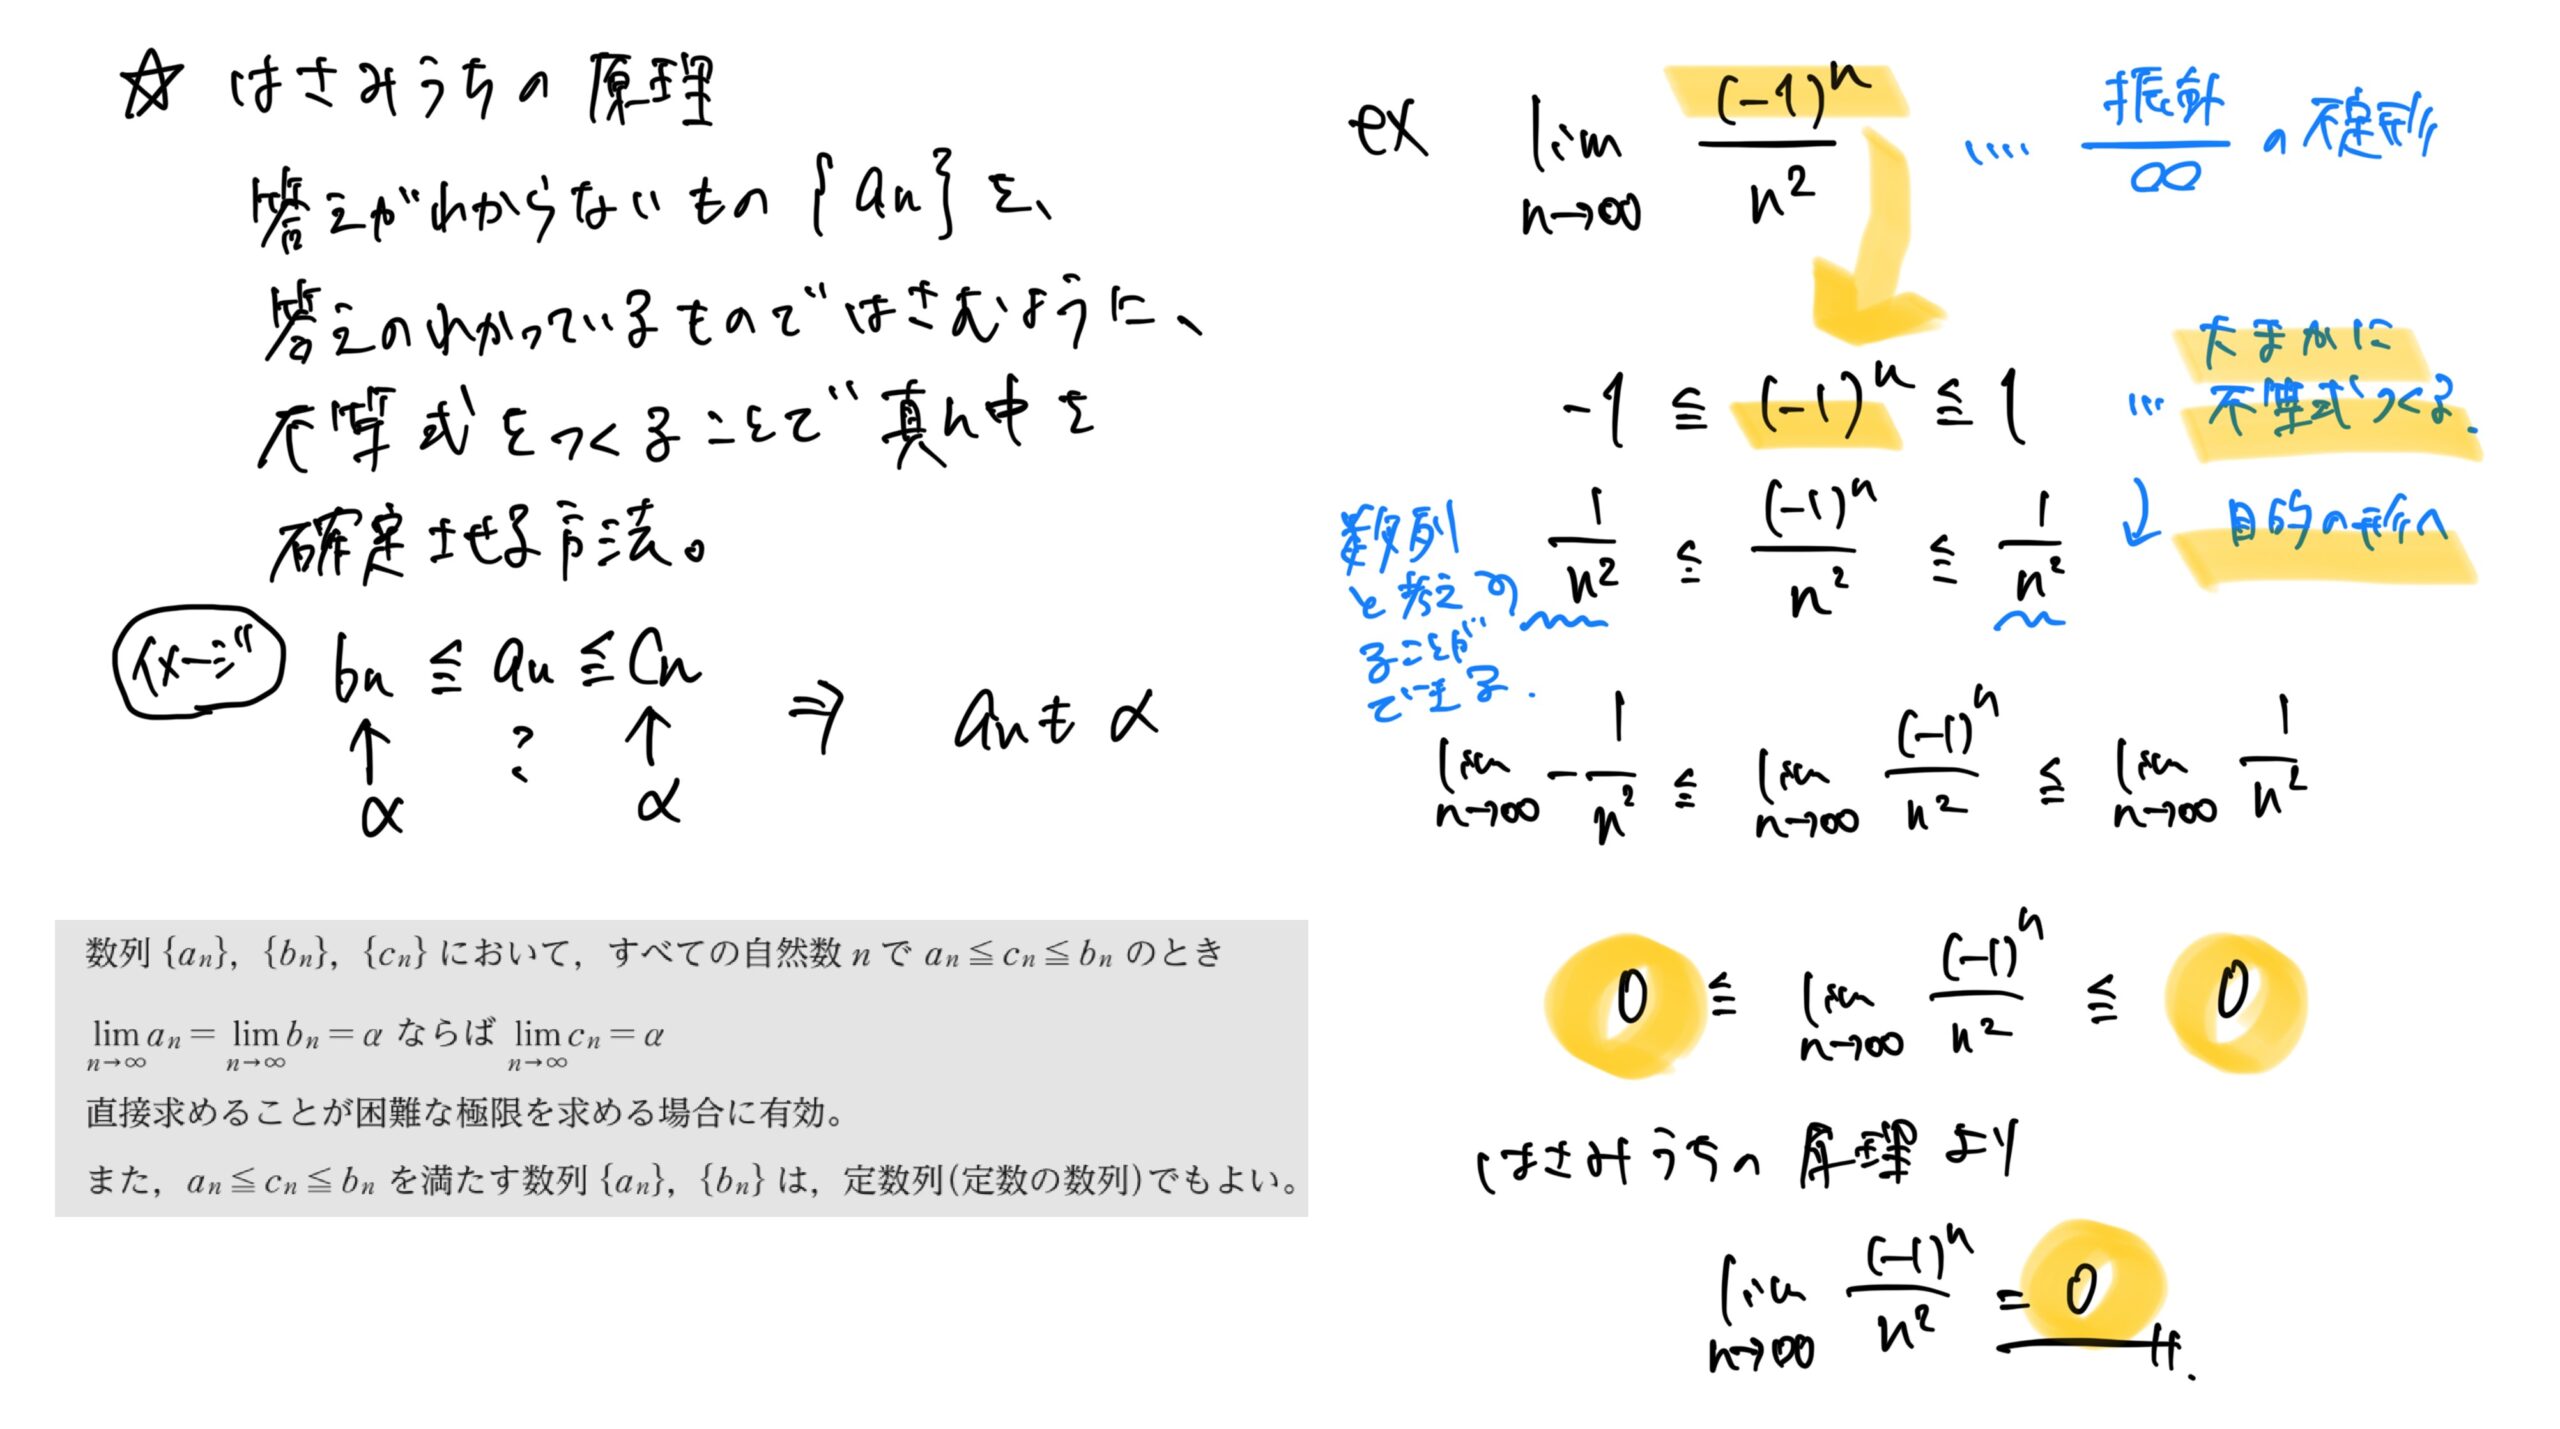 ☆ はさみうちの原理
答えがわからないもの {an} を、
答えのわかっているものではさむように、
不等式をつくることで真ん中を
確定させる方法。
イメージ bn ≦ an ≦ cn ⇒ anも α
↑ ? ↑
α α
数列 {an}，{bn}，{cn} において，すべての自然数 n で an≦cn≦bn のとき
lim n→∞ an = lim n→∞ bn = α ならば lim n→∞ cn = α
直接求めることが困難な極限を求める場合に有効。
また，an≦cn≦bn を満たす数列 {an}，{bn} は，定数列(定数の数列)でもよい。
ex lim n→∞ (-1)^n / n² ‥‥ 振動 / ∞ の不定形
-1 ≦ (-1)^n ≦ 1 … 大まかに
不等式つくる.
1/n² ≦ (-1)^n / n² ≦ 1/n² 目的の形へ
数列
と考え
ることが
できる.
lim n→∞ -1/n² ≦ lim n→∞ (-1)^n / n² ≦ lim n→∞ 1/n²
0 ≦ lim n→∞ (-1)^n / n² ≦ 0
はさみうちの原理より
lim n→∞ (-1)^n / n² = 0